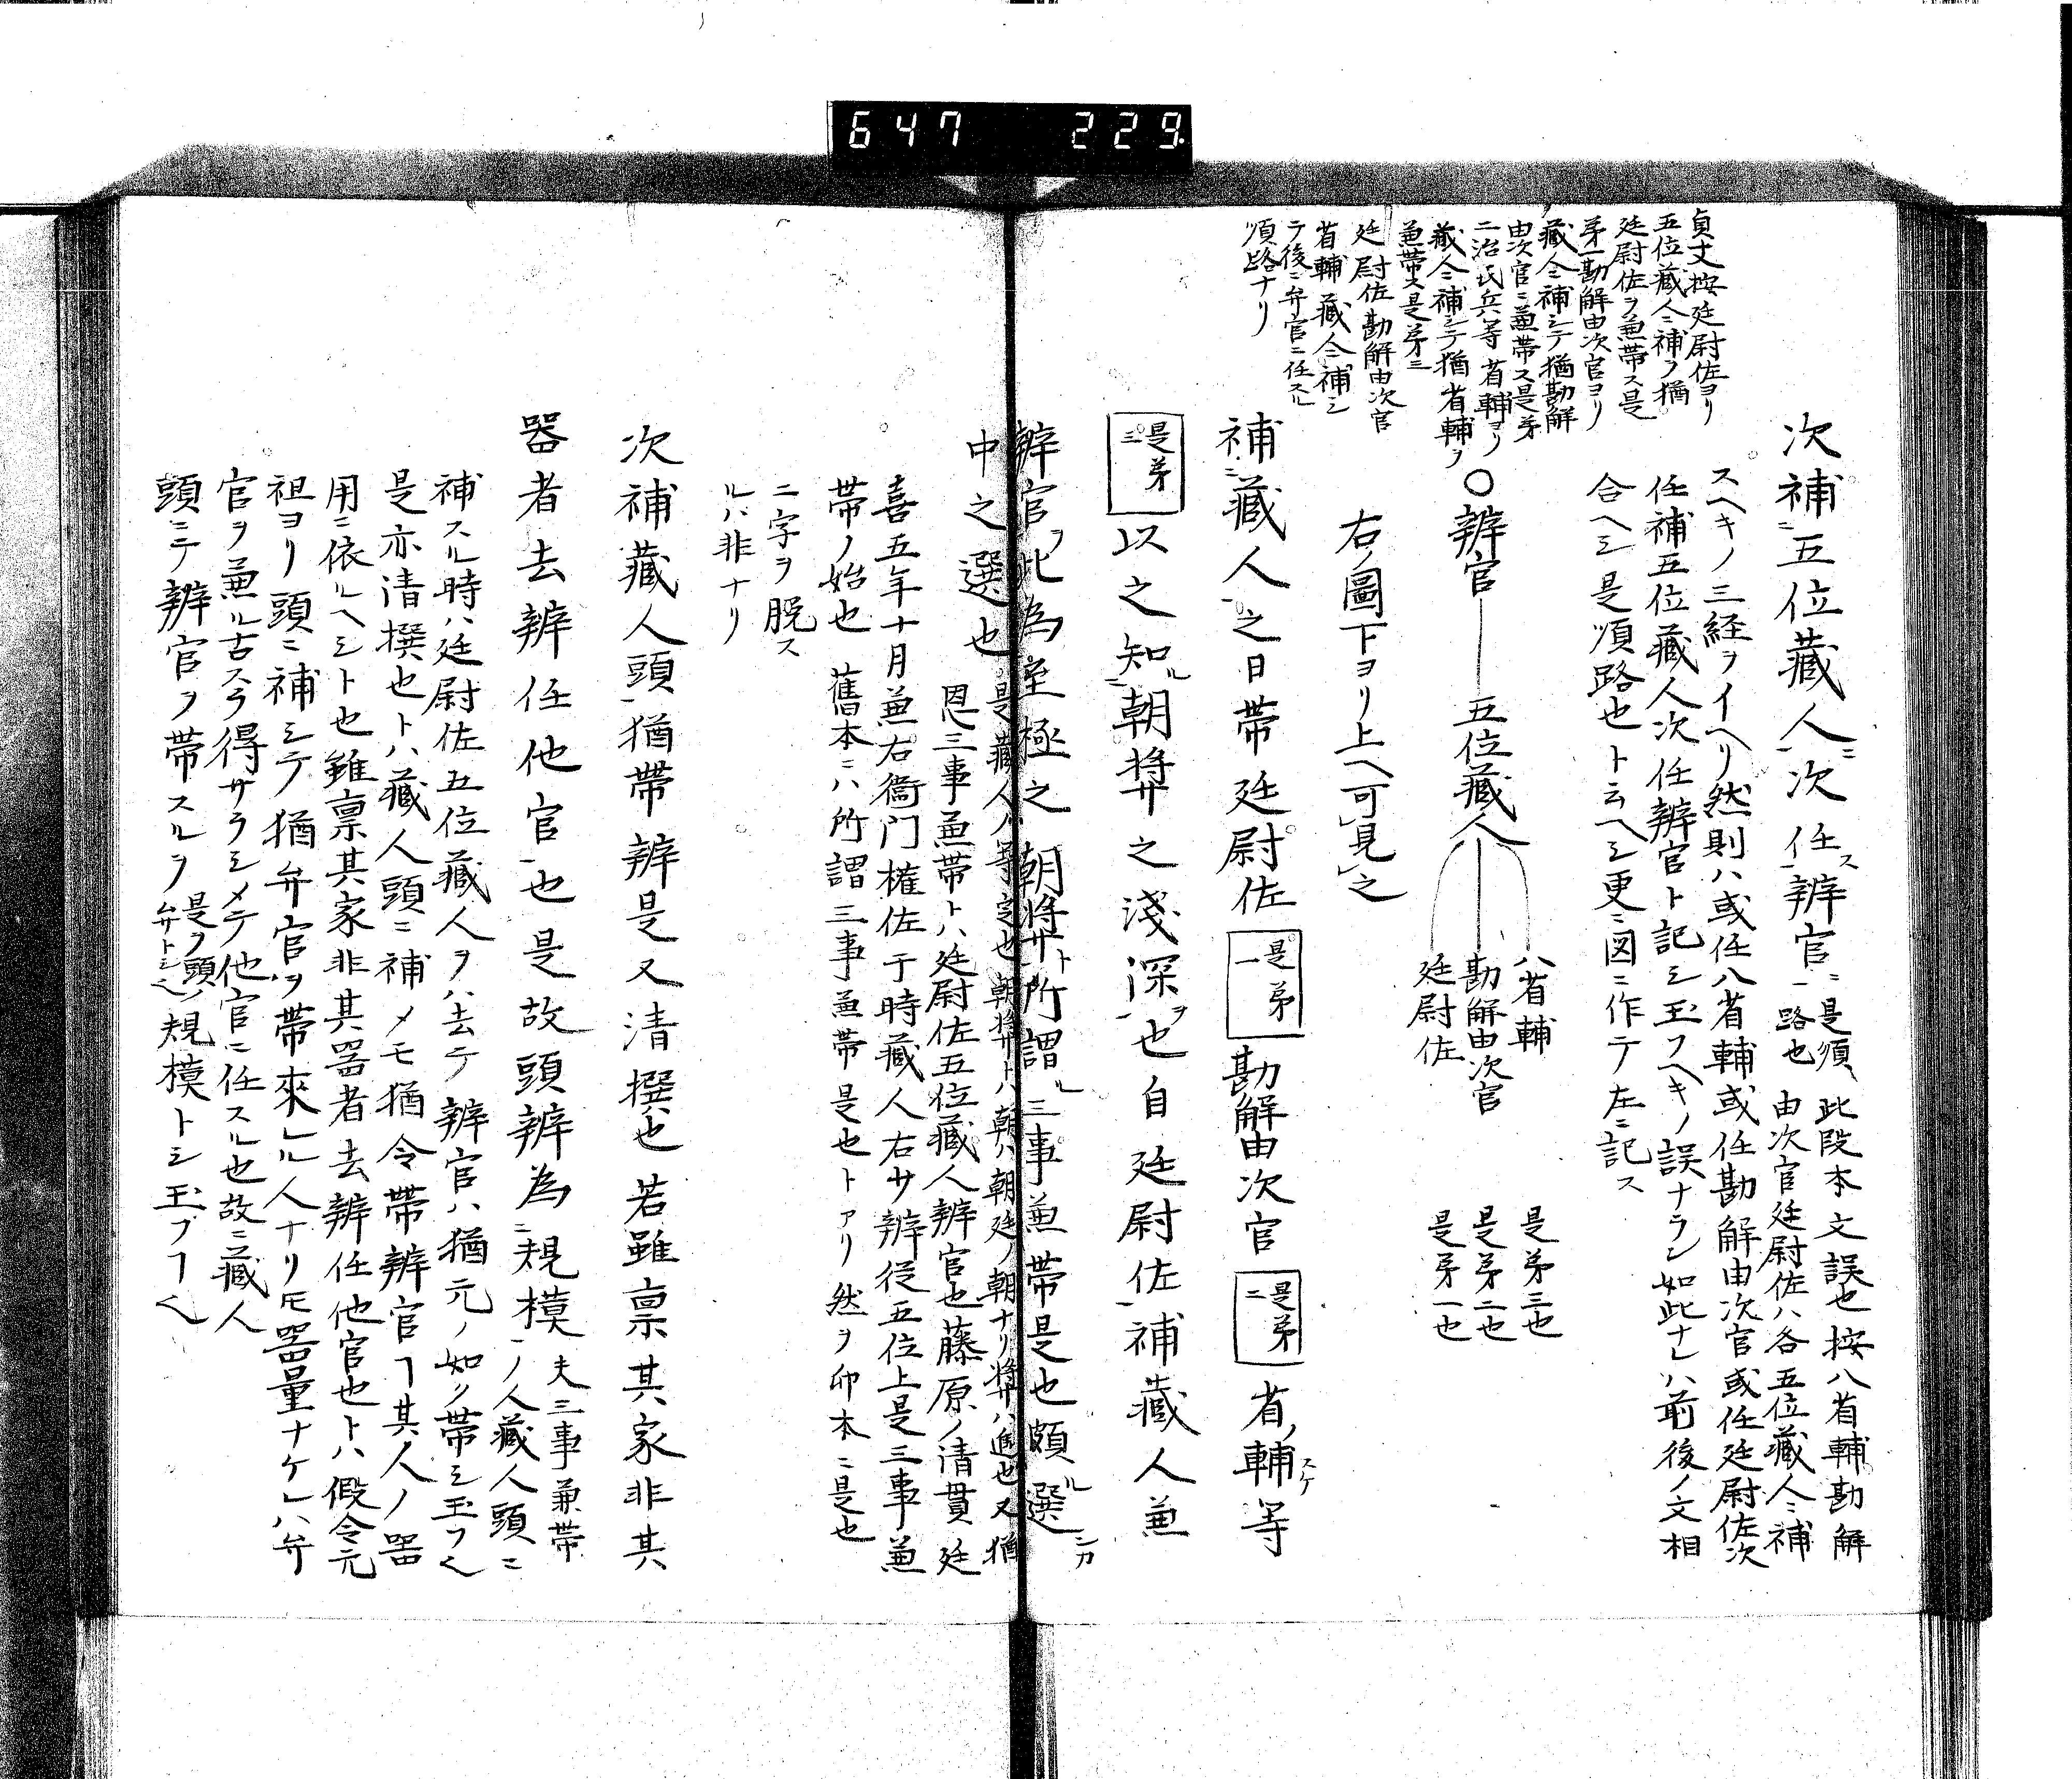 647 229.
貞丈按廷尉佐ヨリ
五位藏人ニ補フ猶
廷尉佐ヲ兼帯ス是
第一勘解由次官ヨリ
藏人ニ補シテ猶勘解
由次官ニ兼帯ス是第
二治民兵等省輔ヨリ
藏人ニ補シテ猶省輔ヲ
兼帯ス是第三
廷尉佐勘解由次官
省輔藏人ニ補シ
テ後ニ弁官ニ任スル
順路ナリ
次補ニ五位藏人一次任ス辨官ニ一是順路也 此段本文誤也按八省輔勘解
由次官廷尉佐ハ各五位藏人ニ補
スヘキノ三経ヲイヘリ然則ハ或任八省輔或任勘解由次官或任廷尉佐次
任補五位藏人次任辨官ト記シ玉フヘキノ誤ナラン如此ナレハ前後ノ文相
合ヘシ是順路也ト云ヘシ更ニ図ニ作テ左ニ記ス
○辨官―五位藏人
八省輔 是第三也
勘解由次官 是第二也
廷尉佐 是第一也
右ノ圖下ヨリ上ヘ可見之
補ニ藏人一之日帯廷尉佐 是第一 勘解由次官 是第二 省ノ輔スケ等
是第三 以之知ル朝奬之淺深ヲ也自廷尉佐補藏人兼
辨官ヲ此為至極之朝奬ト所謂ル三事兼帯是也頗ル選
中之選也 是藏人ノ
恩三事兼帯トハ廷尉佐五位藏人辨官也藤原ノ清貫延
喜五年十月兼右衛門権佐于時藏人右少辨従五位上是三事兼
帯ノ始也 舊本ニハ所謂三事兼帯是也トアリ然ヲ印本ニ是也
ニ字ヲ脱ス
ルハ非ナリ
次補藏人頭一猶帯辨是又清撰也若雖禀其家非其
器者去辨任他官一也是故頭辨為ニ規模一 夫三事兼帯
ノ人藏人頭ニ
補スル時ハ廷尉佐五位藏人ヲハ去テ辨官ハ猶元ノ如ク帯シ玉フ
是亦清撰也トハ藏人頭ニ補メモ猶令帯辨官ヿ其人ノ器
用ニ依ルヘシト也雖禀其家非其器者去辨任他官也トハ假令元
祖ヨリ頭ニ補シテ猶弁官ヲ帯來ル人ナリ𪜈器量ナケレハ弁
官ヲ兼ルヿスラ得サラシメテ他官ニ任スル也故ニ藏人
頭ニテ辨官ヲ帯スルヲ是ヲ頭ノ弁ト云規模トシ玉フヿ